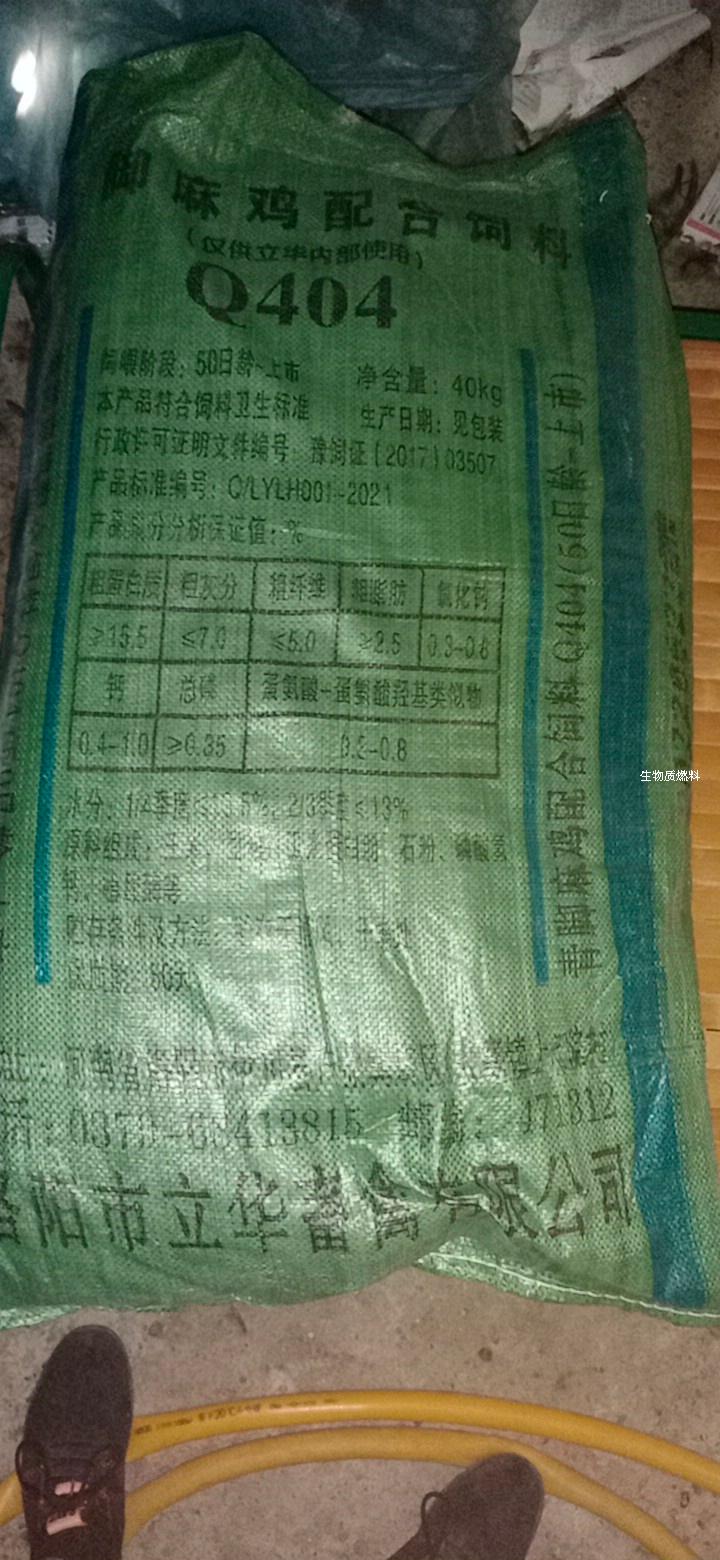 脚麻鸡配合饲料
(仅供立华内部使用)
Q404
饲喂阶段：50日龄~上市 净含量：40kg
本产品符合饲料卫生标准 生产日期：见包装
行政许可证明文件编号：豫饲证(2017)03507
产品标准编号：Q/LYLH001-2021
产品成分分析保证值：%
粗蛋白质 粗灰分 粗纤维 粗脂肪 氯化钠
≥15.5 ≤7.0 ≤5.0 ≥2.5 0.3-0.8
钙 总磷 蛋氨酸+蛋氨酸羟基类似物
0.4-1.0 ≥0.35 0.2-0.8
水分：1/4季度≤13.5%、2/3季度≤13%
原料组成：玉米、石粉、磷酸氢
钙、植酸酶等
贮存条件及方法：
保质期：60天
0379-65413815 邮编：471812
洛阳市立华畜禽有限公司
青脚麻鸡配合饲料Q404(50日龄-上市)
生物质燃料